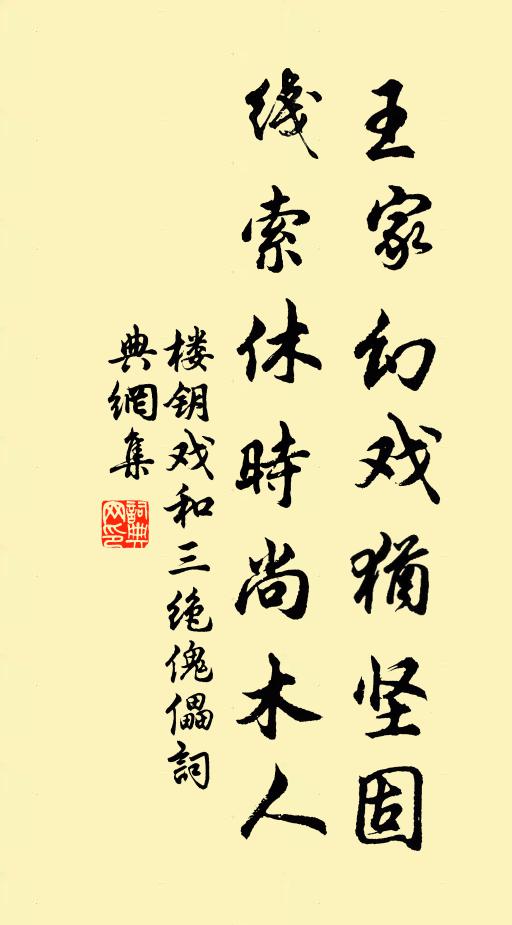 王家幻戏猶坚固
线索休時尚木人
楼钥戏和三绝傀儡詞
典網集
詞典网印